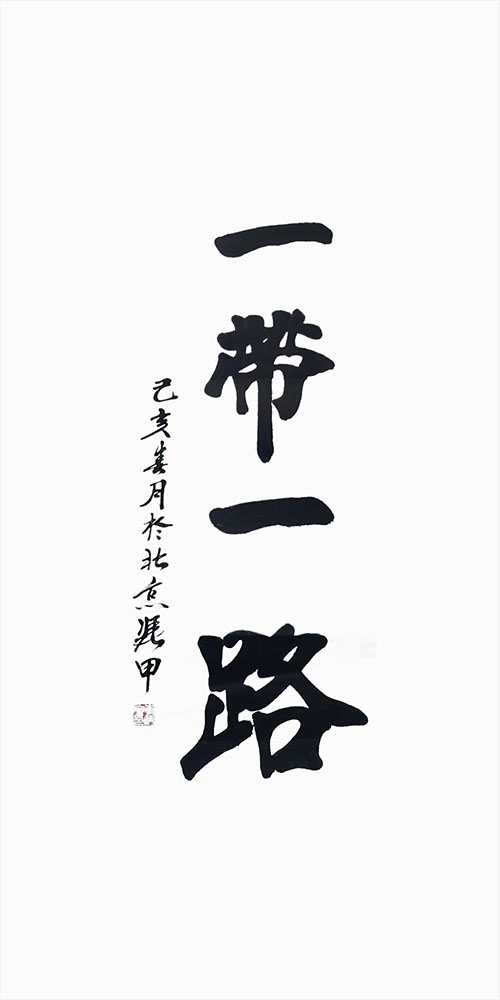 一带一路
己亥春月於北京甲